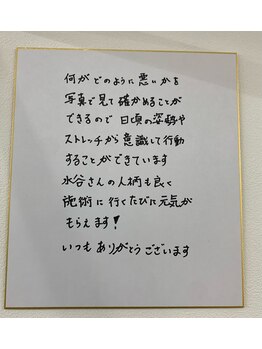 何がどのように悪いかを
写真で見て確かめることが
できるので 日頃の姿勢や
ストレッチから意識して行動
することができています
水谷さんの人柄も良く
施術に行くたびに元気が
もらえます!
いつもありがとうございます